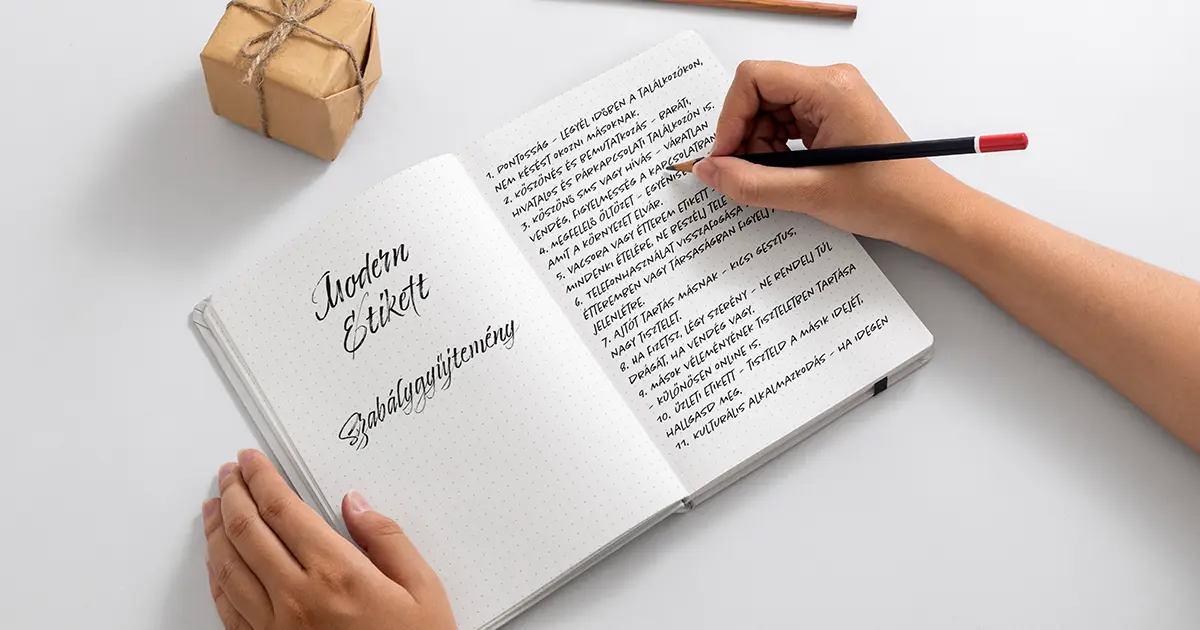 Modern
Etikett
Szabálygyűjtemény
1. PONTOSSÁG – LEGYÉL IDŐBEN A TALÁLKOZÓKON,
NEM KÉSÉST OKOZNI MÁSOKNAK.
2. KÖSZÖNÉS ÉS BEMUTATKOZÁS – BARÁTI,
HIVATALOS ÉS PÁRKAPCSOLATI TALÁLKOZÓN IS.
3. KÖSZÖNŐ SMS VAGY HÍVÁS – VÁRATLAN
VENDÉG, FIGYELMESSÉG A KAPCSOLATBAN
4. MEGFELELŐ ÖLTÖZET –
AMIT A KÖRNYEZET ELVÁR.
5. VACSORA VAGY ÉTTEREM ETIKETT –
MINDENKI ÉTELÉRE, NE BESZÉLJ
6. TELEFONHASZNÁLAT VISSZAFOGÁSA
ÉTTEREMBEN VAGY TÁRSASÁGBAN FIGYELJ
JELENLÉTRE.
7. AJTÓT TARTÁS MÁSNAK – KICSI GESZTUS,
NAGY TISZTELET.
8. HA FIZETSZ, LÉGY SZERÉNY – NE RENDELJ TÚL
DRÁGÁT, HA VENDÉG VAGY.
9. MÁSOK VÉLEMÉNYÉNEK TISZTELETBEN TARTÁSA
– KÜLÖNÖSEN ONLINE IS.
10. ÜZLETI ETIKETT – TISZTELD A MÁSIK IDEJÉT,
HALLGASD MEG.
11. KULTURÁLIS ALKALMAZKODÁS – HA IDEGEN